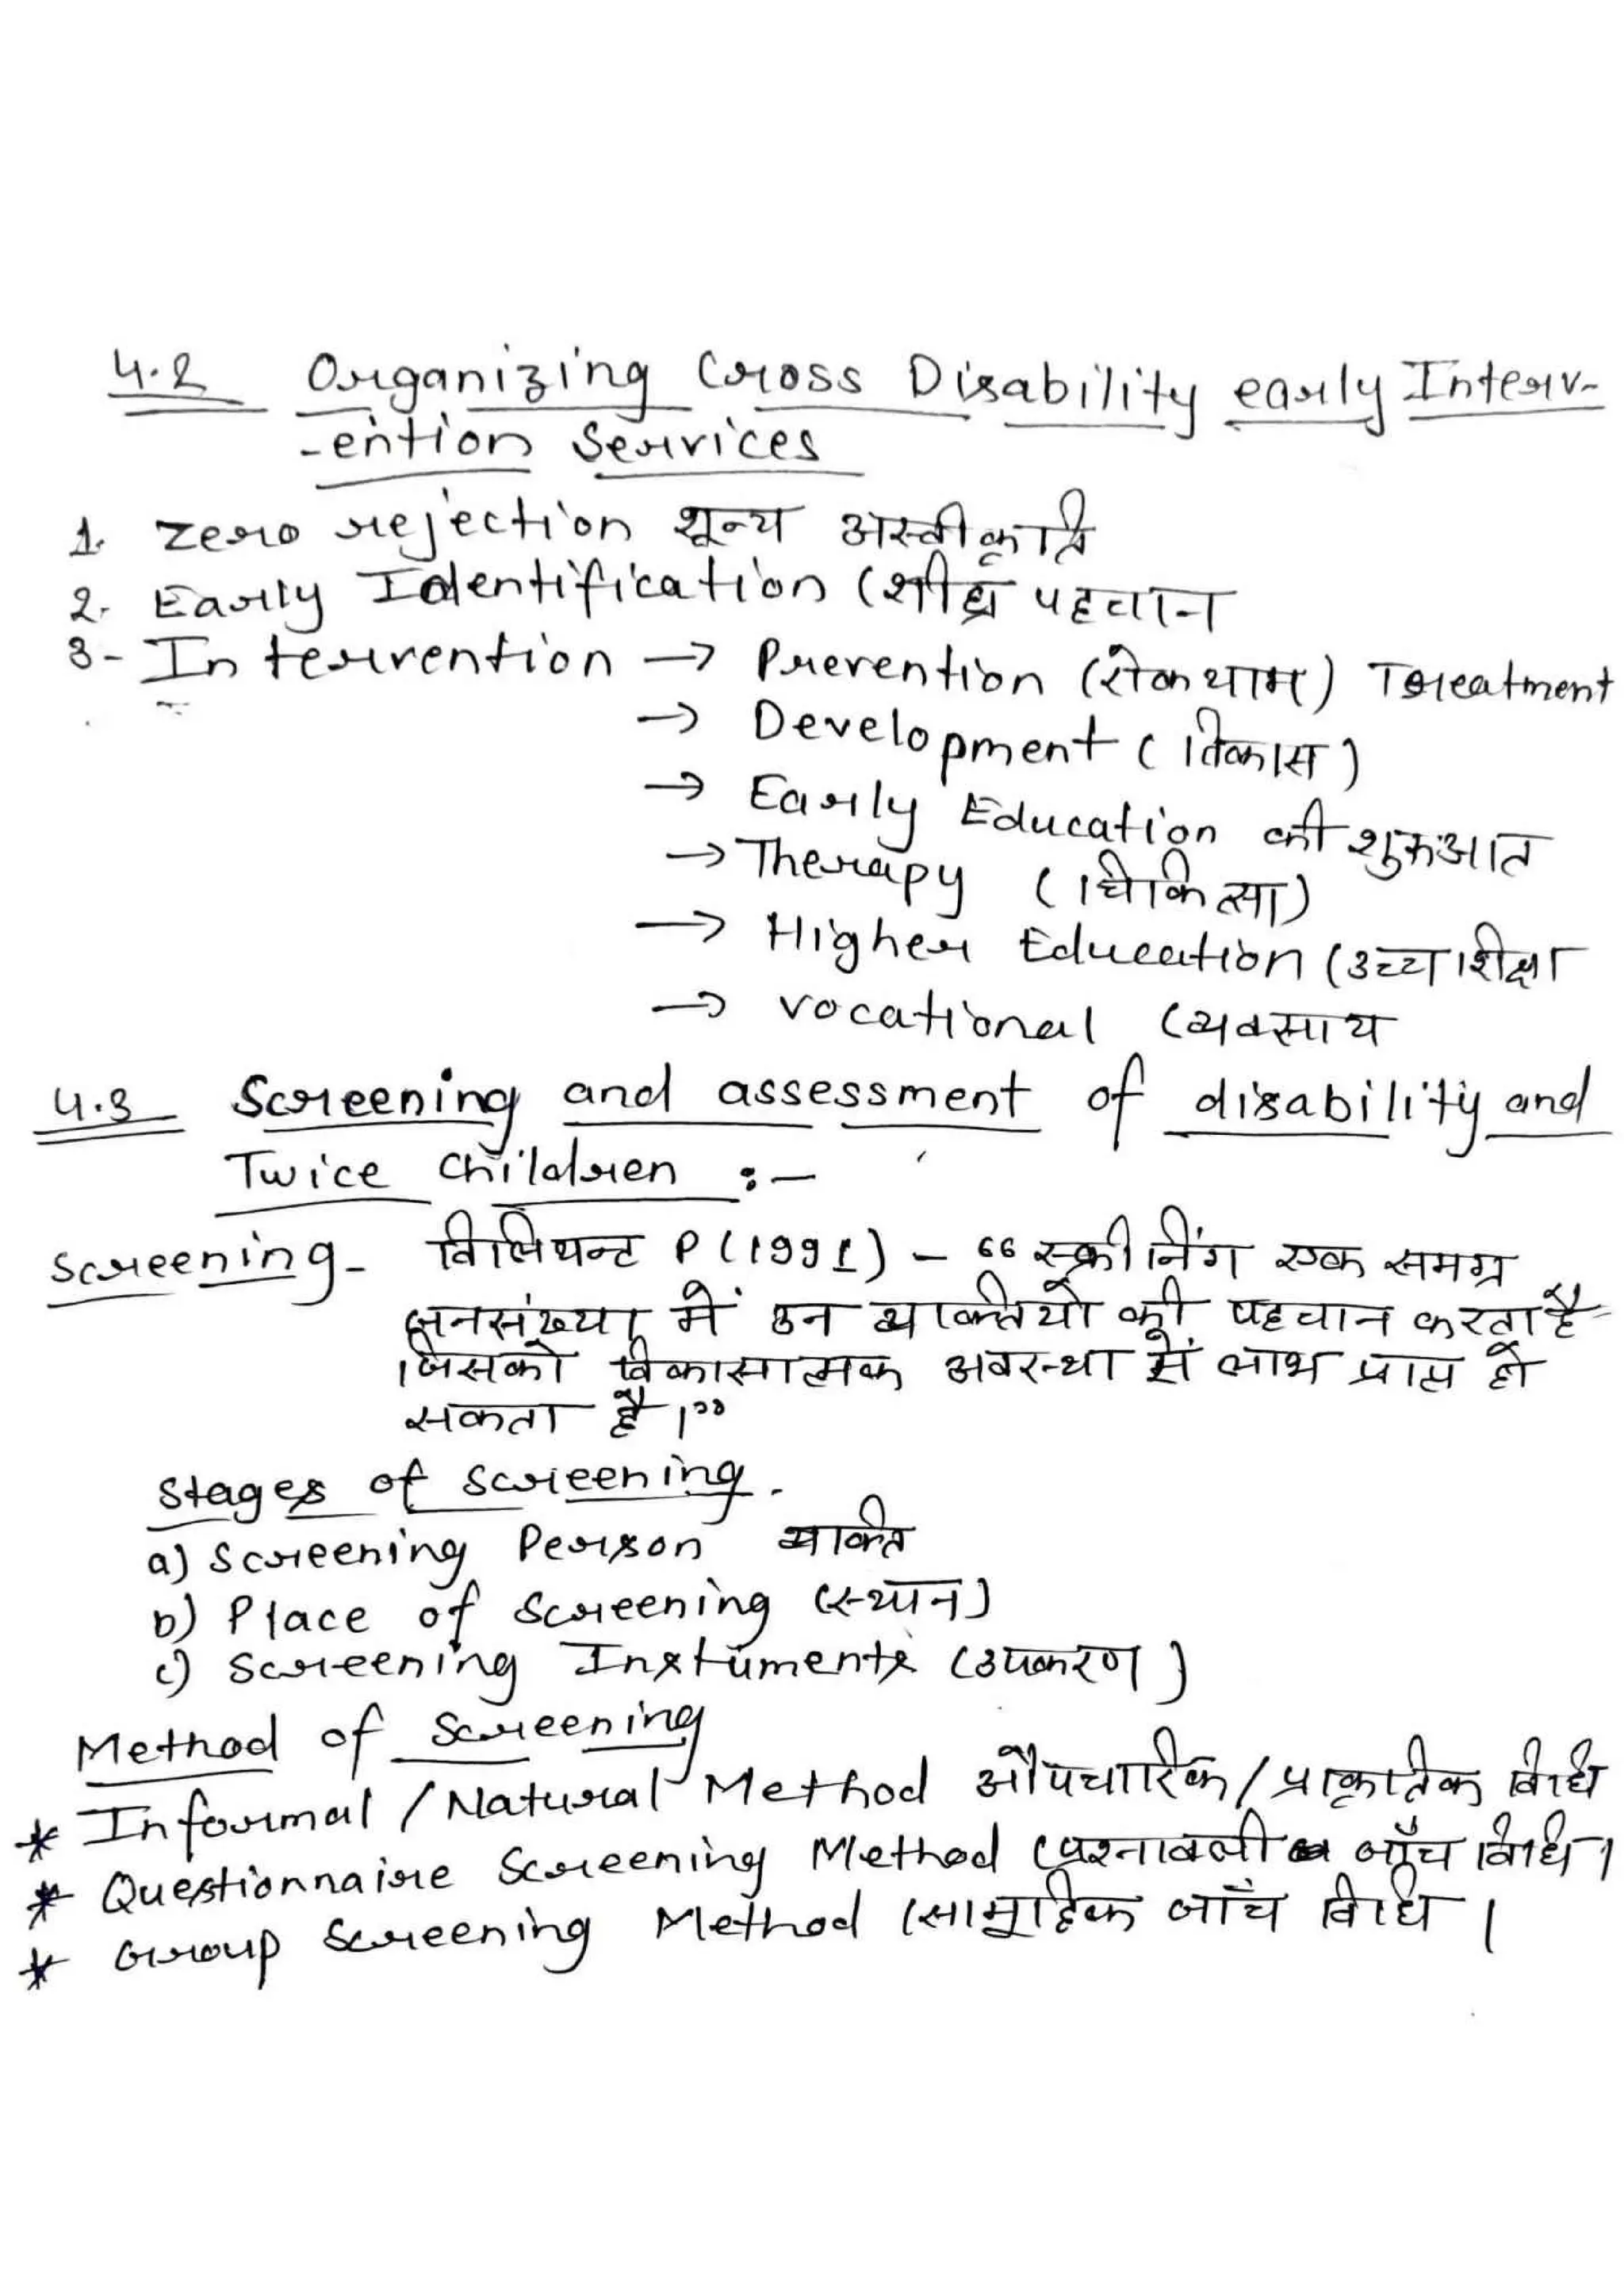 4.2 Organizing Cross Disability early Interv-
-ention Services
1. Zero rejection शून्य अस्वीकृति
2. Early Identification (शीघ्र पहचान
3- Intervention → Prevention (रोकथाम) Treatment
→ Development (विकास)
→ Early Education की शुरूआत
→ Therapy (चिकित्सा)
→ Higher Education (उच्च शिक्षा
→ vocational (व्यवसाय
4.3 Screening and assessment of disability and
Twice children :-
Screening- विलियन्ट P (1991) - “स्क्रीनिंग एक समग्र
जनसंख्या में उन व्यक्तियों की पहचान करता है
जिसको विकासात्मक अवस्था में लाभ प्राप्त हो
सकता है ।”
Stages of screening.
a) Screening Person व्यक्ति
b) Place of Screening (स्थान)
c) Screening Instuments (उपकरण)
Method of Screening
* Informal / Natural Method औपचारिक / प्राकृतिक विधि
* Questionnaire Screening Method (प्रश्नावली जाँच विधि।
* Group Screening Method (सामूहिक जाँच विधि |